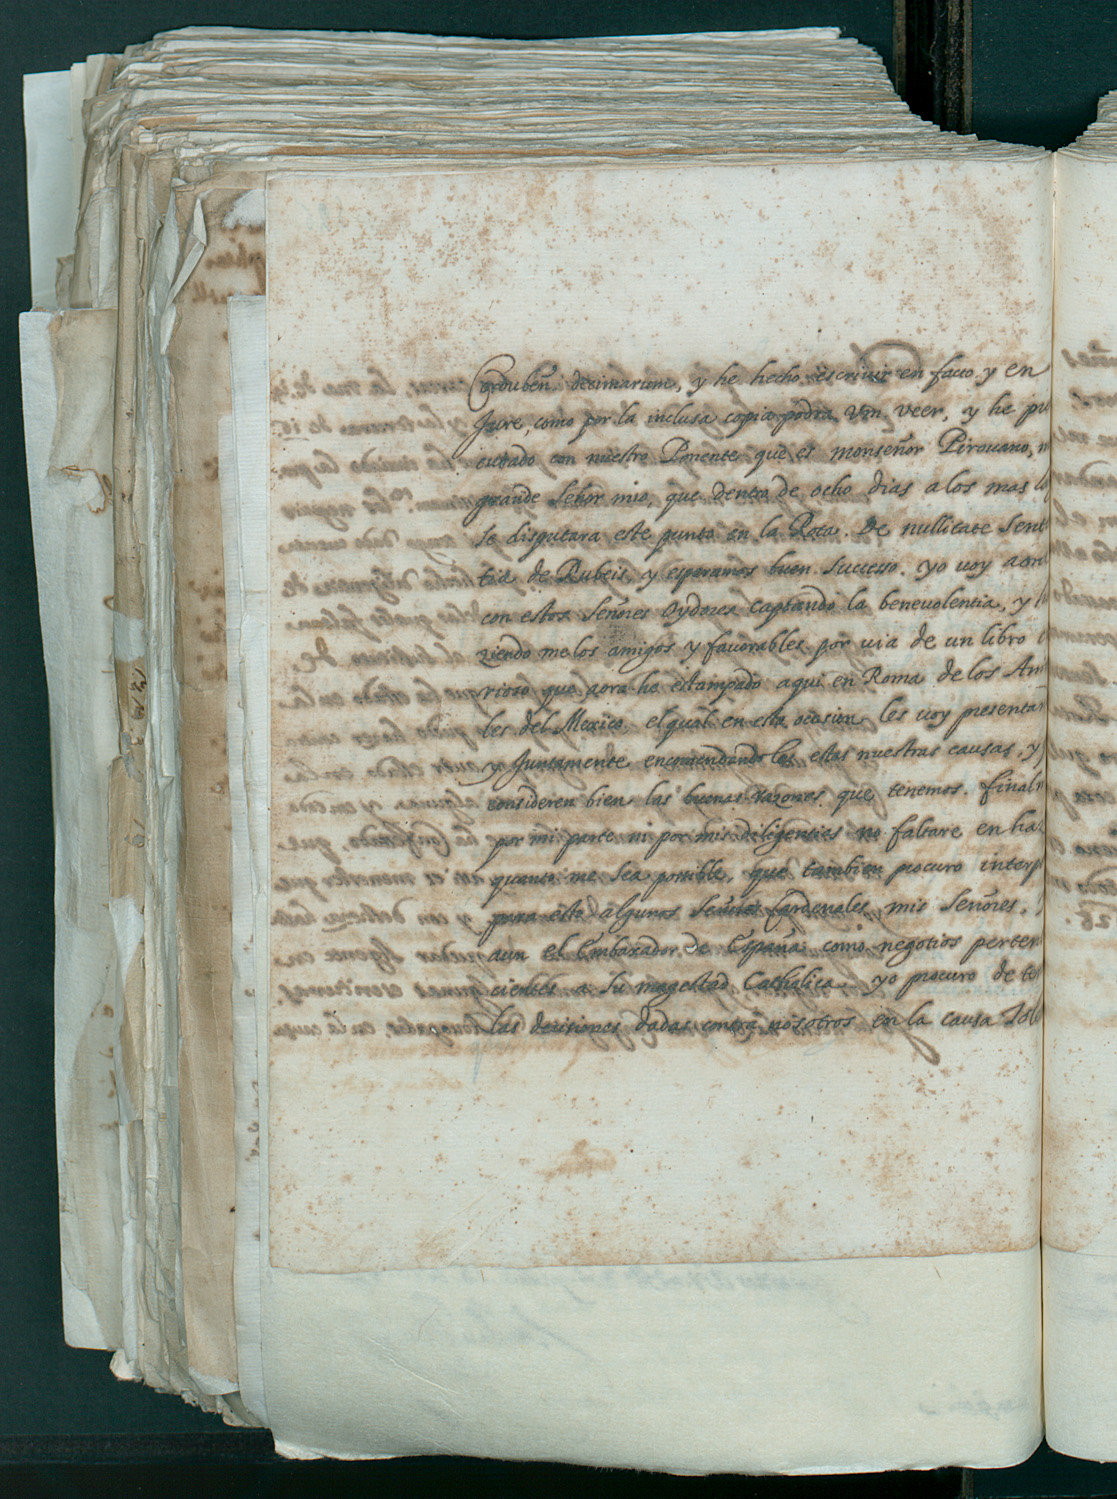 Corduben. decimarum, y he hecho escrivir en facto y en
Jure, como por la inclusa copia podra Vm. veer, y he pu
curado con nuestro Ponente que es monseñor Pirouano, m
grande Señor mio, que dentro de ocho dias a los mas lo
se disputara este punto en la Rota. De nullitate Sent
tia de Rubeis, y esperamos buen successo. yo voy aora
con estos Señores Oydores captando la benevolentia, y h
ziendo me los amigos y favorables por via de un libro c
rioso que aora he estampado aqui en Roma de los An
les del Mexico, el qual en esta ocasion les voy presentan
y Juntamente encomendando les estas nuestras causas, y
consideren bien las buenas razones que tenemos. finalm
por mi parte ni por mis diligenties no faltare en ha
quanto me sea possible, que tambien procuro interp
para esto algunos Señores Cardenales, mis Señores,
aun el Embaxador de España como negotios perten
cientes a su magestad Catholica. yo procuro de to
las decisiones dadas contra nosotros en la causa Tole